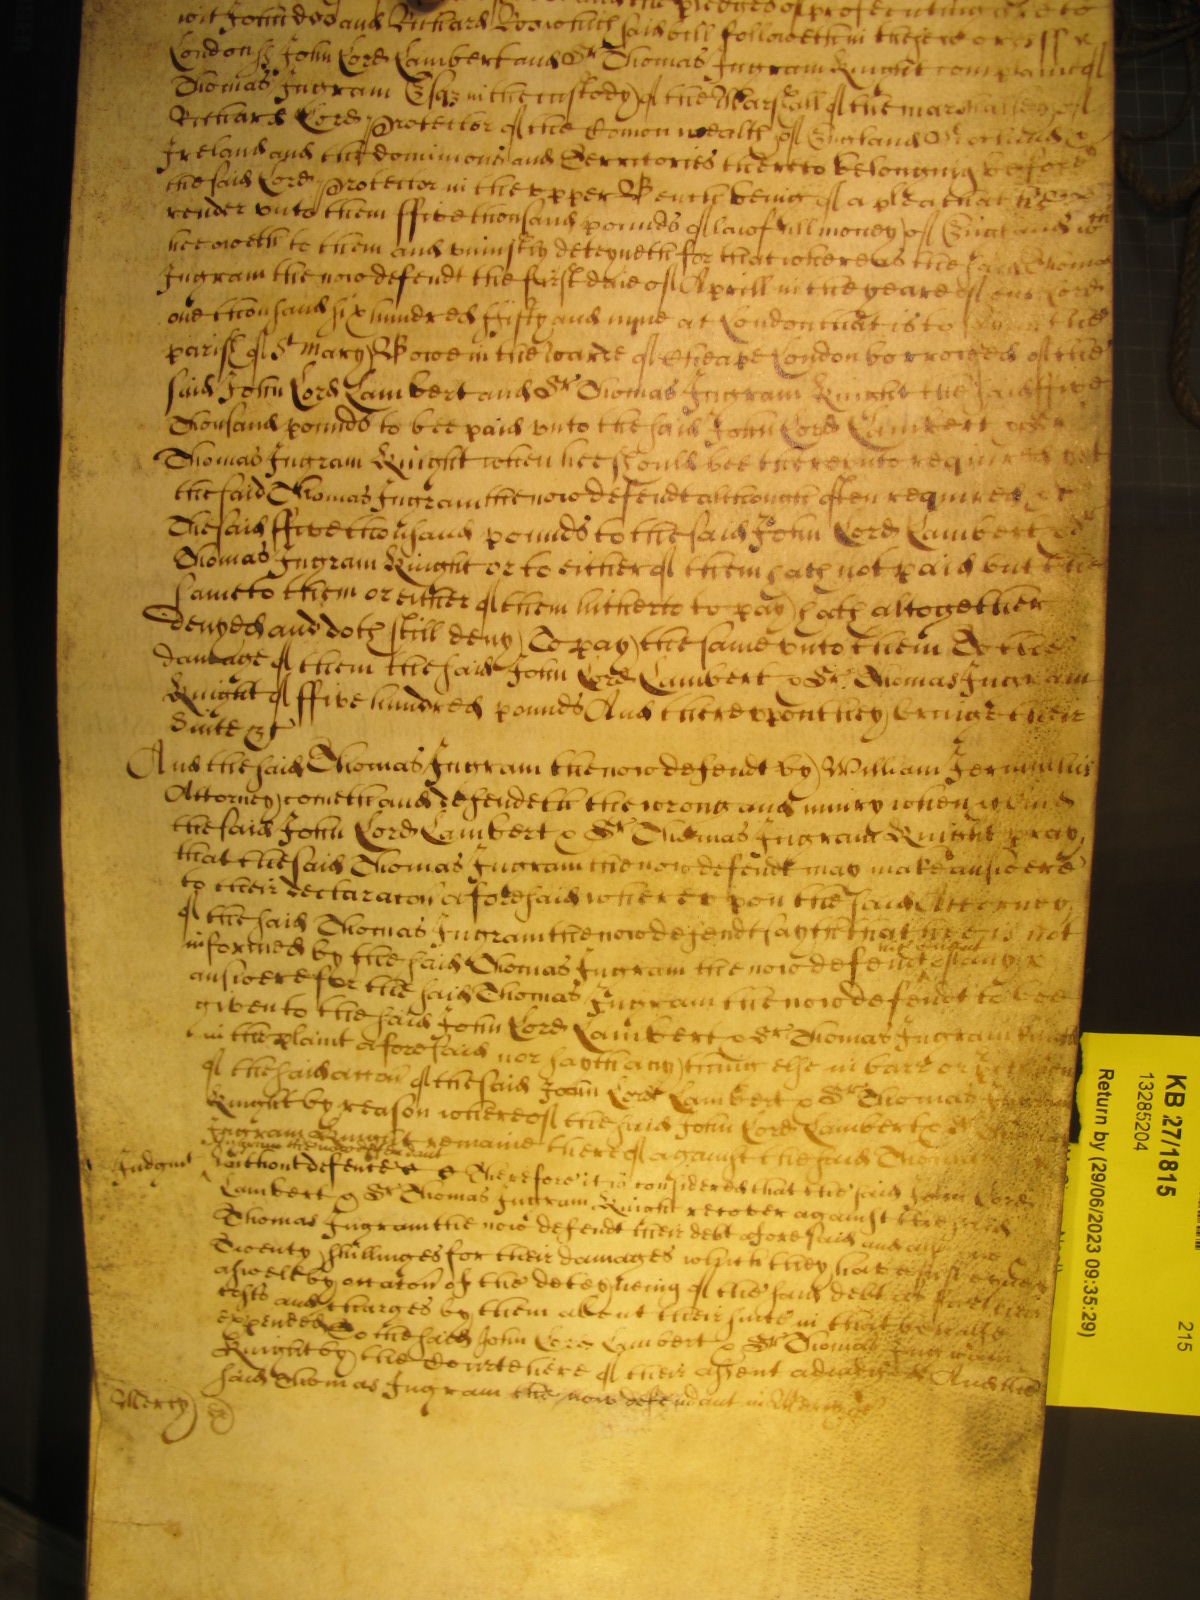 and the pledges of prosecuting are to
wit John doo and Richard Roo which said bill followeth in these words ss
London ss John Lord Lambert and Sr Thomas Ingram Knight complaine of
Thomas Ingram Esqr in the custody of the Marshall of the marshallsey of
Richard Lord Protector of the Comon wealth of England Scotland &
Ireland and the dominions and Territories thereto belonging before
the said Lord Protector in the vpper Bench being of a plea that hee
render vnto them ffive thousand pounds of lawfull money of England wch
hee oweth to them and vniustly deteyneth for that whereas the said Thomas
Ingram the now defendt the first daie of Aprill in the yeare of our Lord
one thousand six hundred fifty and nyne at London that is to say in the
parish of St Mary Bowe in the warde of Cheape London borrowed of the
said John Lord Lambert and Sr Thomas Ingram Knight the said ffive
Thousand pounds to bee paid vnto the said John Lord Lambert & Sr
Thomas Ingram Knight when hee should bee therevnto required yet
the said Thomas Ingram the now defendt although often required &c
The said ffive thousand pounds to the said John Lord Lambert & Sr
Thomas Ingram Knight or to either of them hath not paid but the
same to them or either of them hitherto to pay hath altogether
denyed and doth still deny To pay the same vnto them To the
damage of them the said John Lord Lambert & Sr Thomas Ingram
Knight of ffive hundred pounds And therevpon they bringe their
Suite &c
And the said Thomas Ingram the now defendt by William his
Attorney cometh and defendeth the wrong and iniury when &c And
the said John Lord Lambert & Sr Thomas Ingram Knight pray
that the said Thomas Ingram the now defendt may make answere
to their declaracon aforesaid wherevpon the said Attorney
of the said Thomas Ingram the now defendt sayth that hee is not
informed by the said Thomas Ingram the now defendt his Client of any
answere for the said Thomas Ingram the now defendt to bee
given to the said John Lord Lambert & Sr Thomas Ingram Knight
in the plaint aforesaid nor sayth any thing else in barr or
of the said accon of the said John Lord Lambert & Sr Thomas Ingram
Knight by reason whereof the said John Lord Lambert & Sr Thomas
Ingram Knight remaine thereof against the said Thomas
Ingram the now defendant
Judgmt without defence Therefore it is considered that the said John Lord
Lambert & Sr Thomas Ingram Knight recover against the said
Thomas Ingram the now defendt their debt aforesaid and
Twenty shillinges for their damages which they have susteyned
aswell by occacon of the deteyneing of the said debt as for their
costs and charges by them about their suite in that behalfe
expended To the said John Lord Lambert & Sr Thomas Ingram
Knight by the Courte here of their assent adiudged And the
said Thomas Ingram the now defendant in Mercy &c
Mercy
KB 27/1815
215
13285204
Return by (29/06/2023 09:35:29)